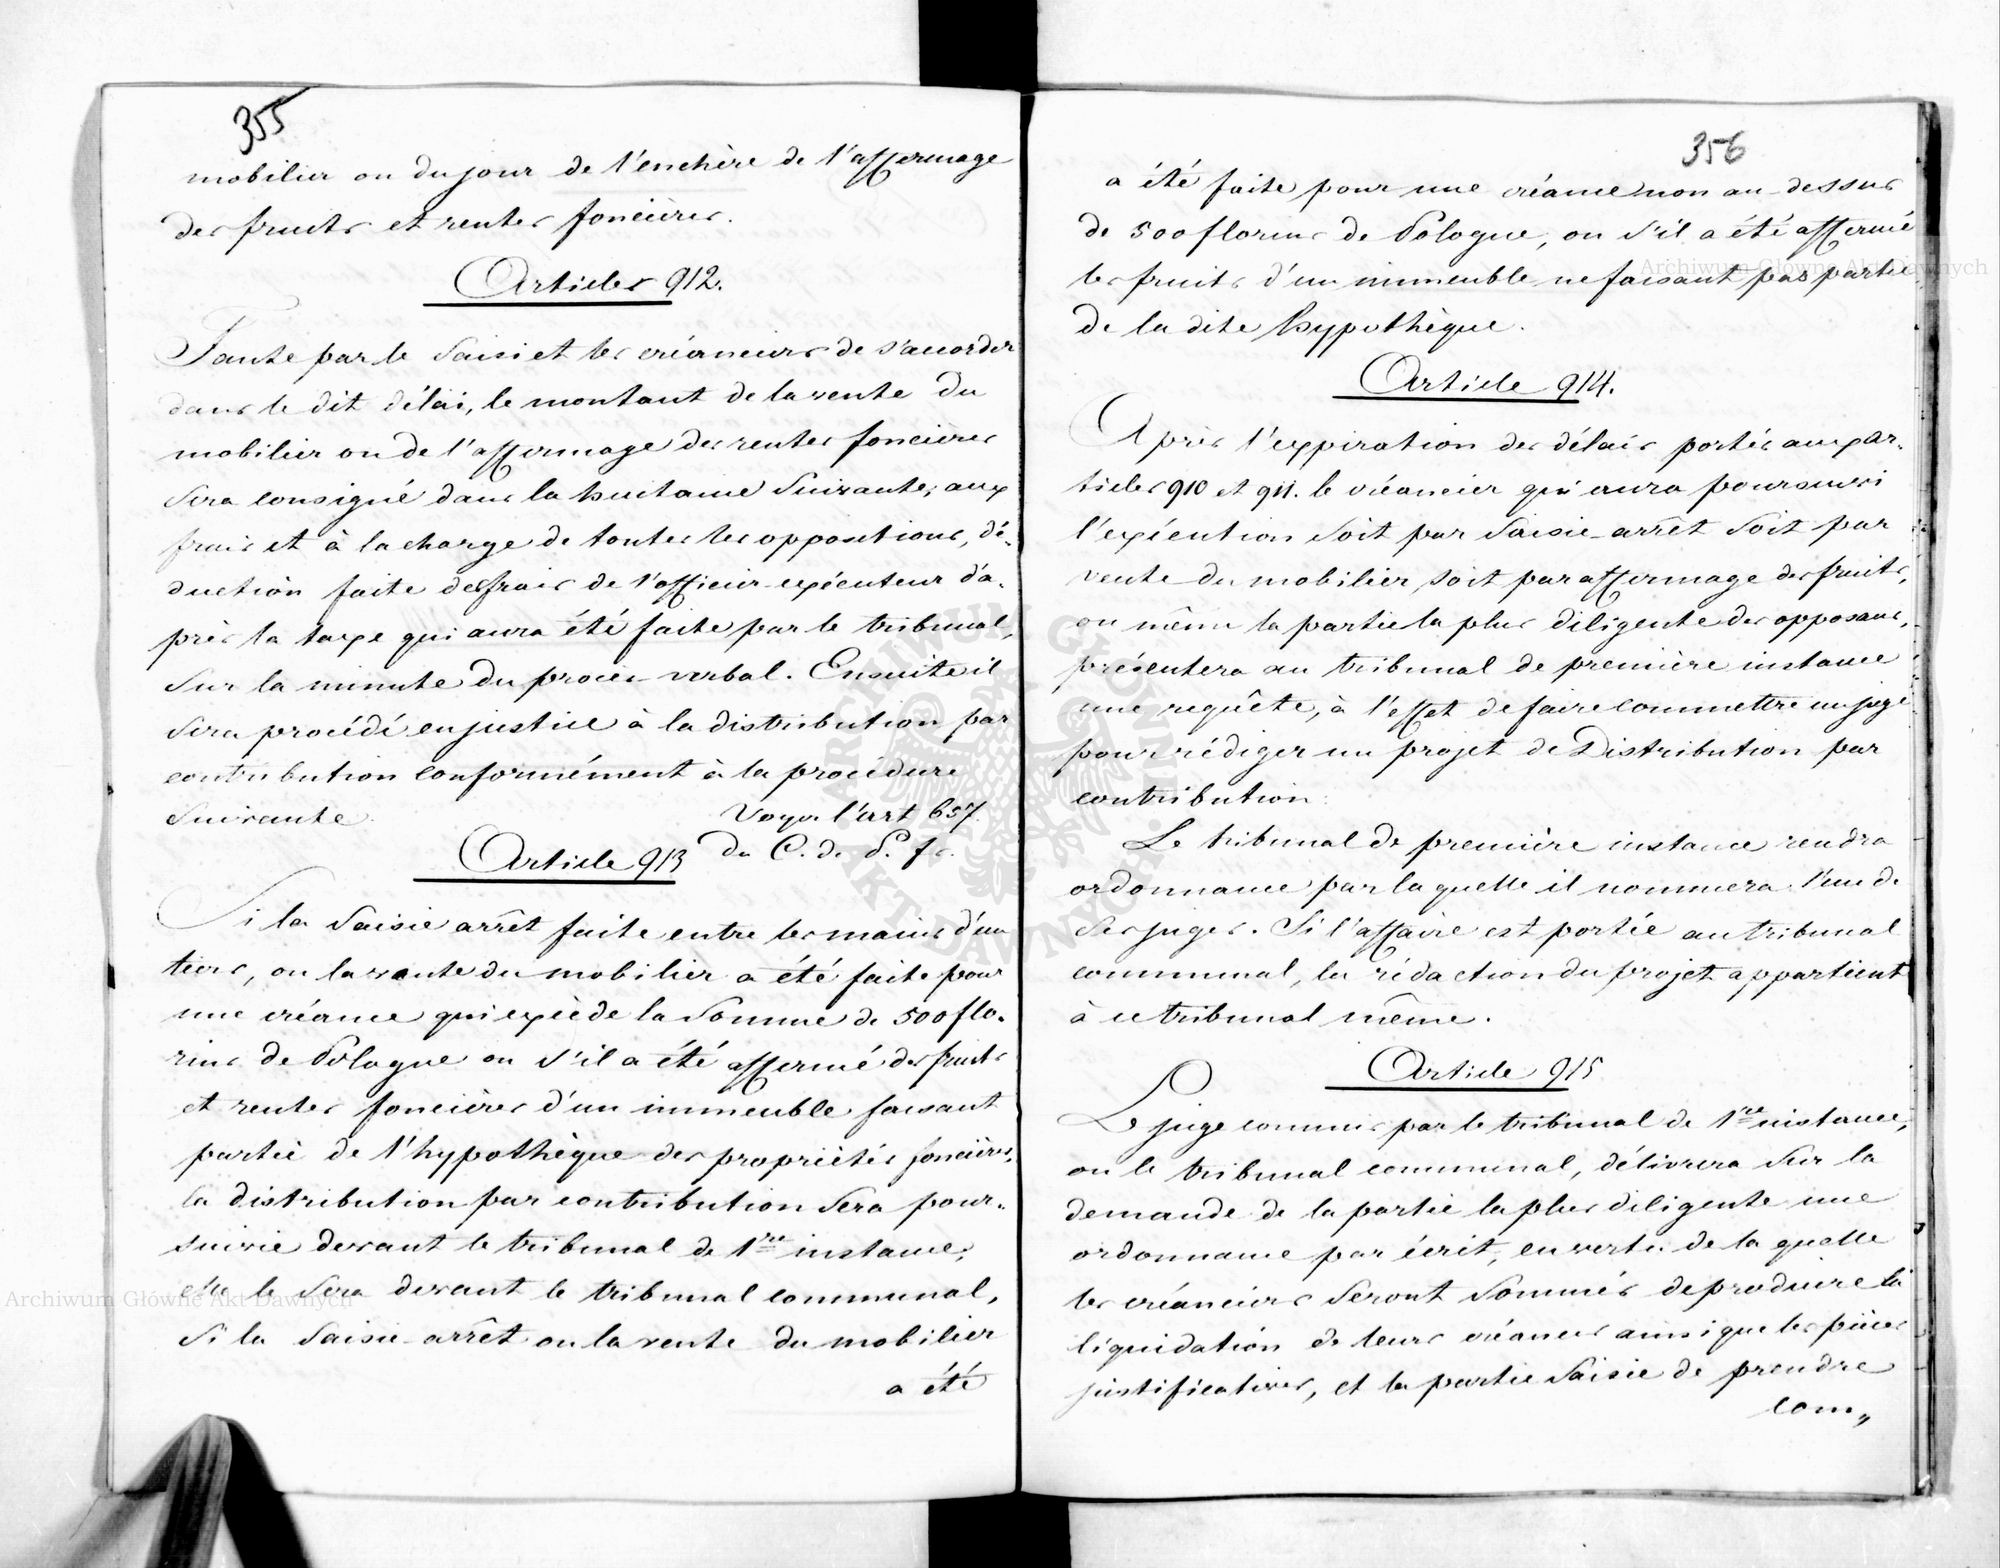 355
mobilier ou du jour de l'enchère de l'affermage
des fruits et rentes foncières.
Articles 912.
Faute par le saisi et les créanciers de s'accorder
dans le dit délai, le montant de la vente du
mobilier ou de l'affermage des rentes foncières
sera consigné dans la huitaine suivante, aux
frais et à la charge de toutes les oppositions, dé-
duction faite des frais de l'officier exécuteur d'a-
près la taxe qui aura été faite par le tribunal,
sur la minute du procès verbal. Ensuite il
sera procédé en justice à la distribution par
contribution conformément à la procédure
suivante. Voyez l'art 657.
du C. de P. fr.
Article 913
Si la saisie arrêt faite entre les mains d'un
tiers, ou la vente du mobilier a été faite pour
une créance qui excède la somme de 500 flo-
rins de Pologne ou s'il a été affermé des fruits
et rentes foncières d'un immeuble faisant
partie de l'hypothèque des propriétés foncières,
la distribution par contribution sera pour-
suivie devant le tribunal de 1re instance;
elle le sera devant le tribunal communal,
si la saisie-arrêt ou la vente du mobilier
a été
356
a été faite pour une créance non au-dessus
de 500 florins de Pologne, ou s'il a été affermé
les fruits d'un immeuble ne faisant pas partie
de la dite hypothèque.
Article 914.
Après l'expiration des délais portés aux ar-
ticles 910 et 911. le créancier qui aura poursuivi
l'exécution soit par saisie-arrêt soit par
vente du mobilier, soit par affermage des fruits,
ou même la partie la plus diligente des opposans,
présentera au tribunal de première instance
une requête, à l'effet de faire commettre un juge
pour rédiger un projet de Distribution par
contribution.
Le tribunal de première instance rendra
ordonnance par la quelle il nommera l'un de
ses juges. Si l'affaire est portée au tribunal
communal, la rédaction du projet appartient
à ce tribunal même.
Article 915
Le juge commis par le tribunal de 1re instance,
ou le tribunal communal, délivrera sur la
demande de la partie la plus diligente une
ordonnance par écrit, en vertu de la quelle
les créanciers seront sommés de produire la
liquidation de leurs créances ainsi que les pièces
justificatives, et la partie saisie de prendre
com„
Archiwum Główne Akt Dawnych
Archiwum Główne Akt Dawnych
ARCHIWUM GŁÓWNE AKT DAWNYCH